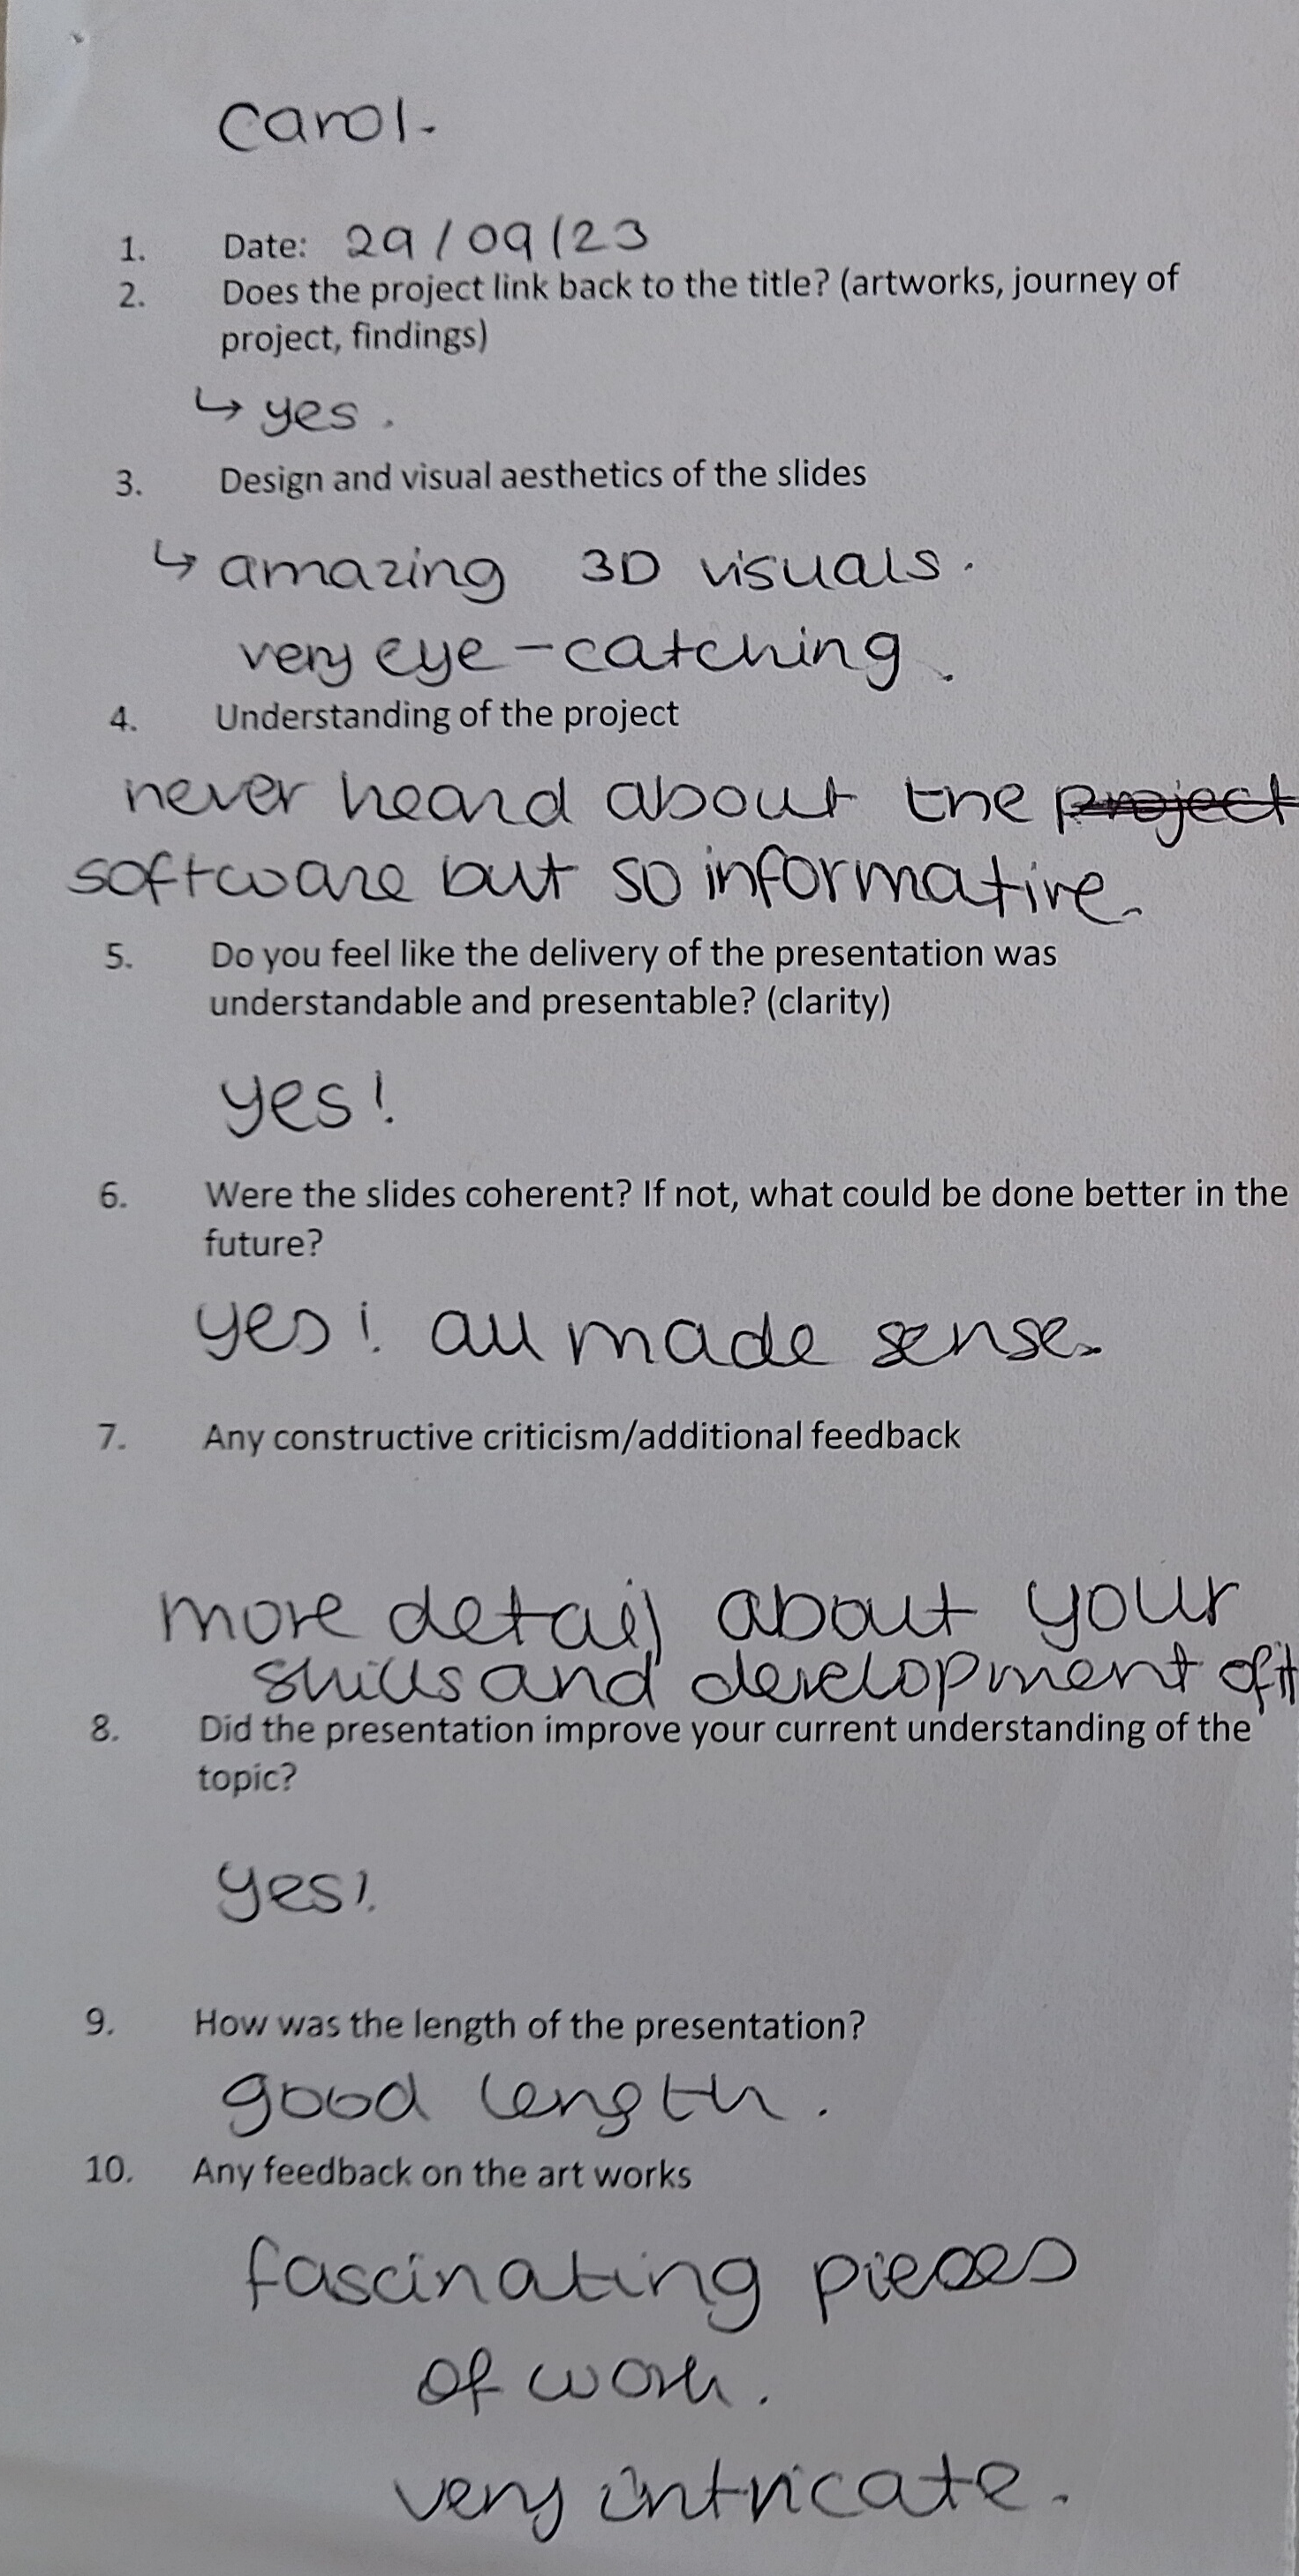 Carol.
1. Date: 29/09/23
2. Does the project link back to the title? (artworks, journey of
project, findings)
↳ yes.
3. Design and visual aesthetics of the slides
↳ amazing 3D visuals.
very eye-catching.
4. Understanding of the project
never heard about the project
software but so informative.
5. Do you feel like the delivery of the presentation was
understandable and presentable? (clarity)
yes!
6. Were the slides coherent? If not, what could be done better in the
future?
yes! all made sense.
7. Any constructive criticism/additional feedback
more detail about your
skills and development of it
8. Did the presentation improve your current understanding of the
topic?
yes!
9. How was the length of the presentation?
good length.
10. Any feedback on the art works
fascinating pieces
of work.
very intricate.